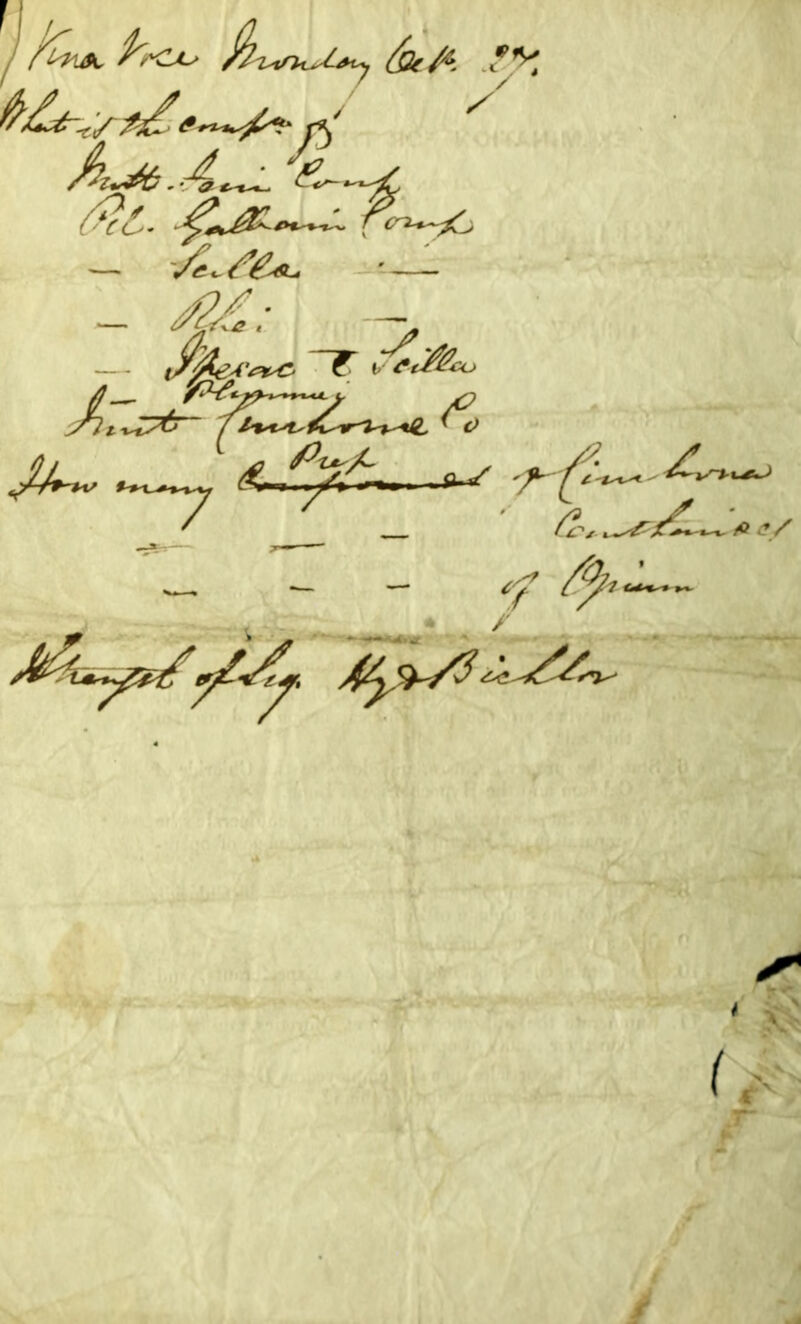 Viva Voce Monday Oct. 27.
What is the comp.n of
Mist. Ferri Comp
Pil. Galbani Comp
— Scilla —
— Rhei —
— Ipecac c Scilla
— Plummer
Tinct Cinchonae Co
How many Compounds Prep of Cinchona
— — — Cantharides
— — — of Opium
Strength of Liq. Hyd Bichlor